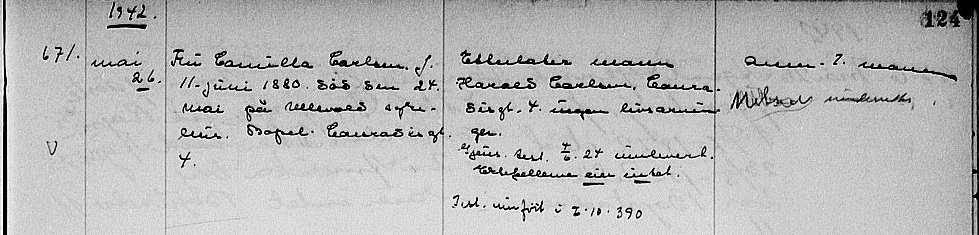 1942.
124
671.
mai
26.
Fru Camilla Carlsen f.
11-juni 1880. død den 24.
mai på Ullevål syke-
hus. Bopel. Conradisgt.
4.
V
Etterlater mann
Harald Carlsen, Conra-
disgt. 4. ingen livsarvin
ger.
Gjens. test. 24 innlevert.
Etterfølterne eier intet.
Test. innført i 7.10.390
Anm. mannen